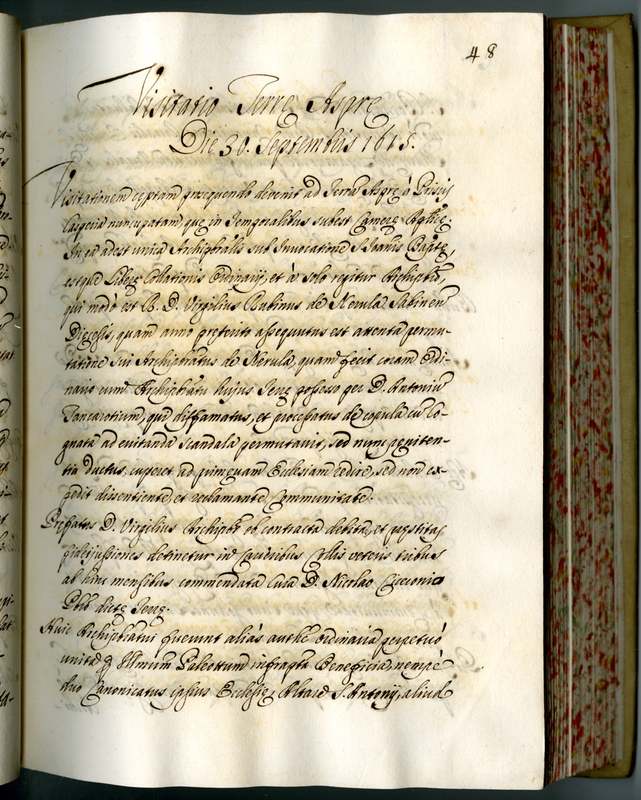 48
Visitatio Terrę Asprę
Die 30. Septembris 1615.
Visitationem cęptam prosequendo devenit ad Terrā Asprę à Priscis
Casperiā nuncupatam, quę in temporalibus subest Camerę Aplicę.
In ea adest unica Archipbralis sub Invocatione S. Joannis Baptę,
estque liberę Collationis Ordinarij, et à solo regitur Archipbrō,
qui modò est R. D. Virgilius Rubinus de Nerula Sabinen̄
Dięcesis, quam anno pręterito assequutus est attenta permu-
tatione sui Archipbratus de Nerula, quam fecit coram Ordi-
nario cum Archipbratu hujus Terrę possesso per D. Antoniū
Tancarotium, qui diffamatus, et processatus de copula cū co-
gnata ad evitanda scandala permutavit, sed nunc pęniten-
tia ductus cuperet ad primęvam Ecclesiam redire, sed non ex-
pedit dissentiente, et reclamante Communitate.
Pręfatus D. Virgilius Archipbr̄ ob contracta debita, et pręstitas
fideijussiones detinetur in Carceribus Collis veteris tribus
ab hinc mensibus commendata Cura D. Nicolao Cicconio
Pbrō dictę Terrę.
Huic Archipbratui fuerunt aliàs authē ordinaria perpetuò
unita p̄ Illmum Paleottum infrapta Beneficia, nempè
duo Canonicatus ipsius Ecclesię, Altare S. Antonij, aliud